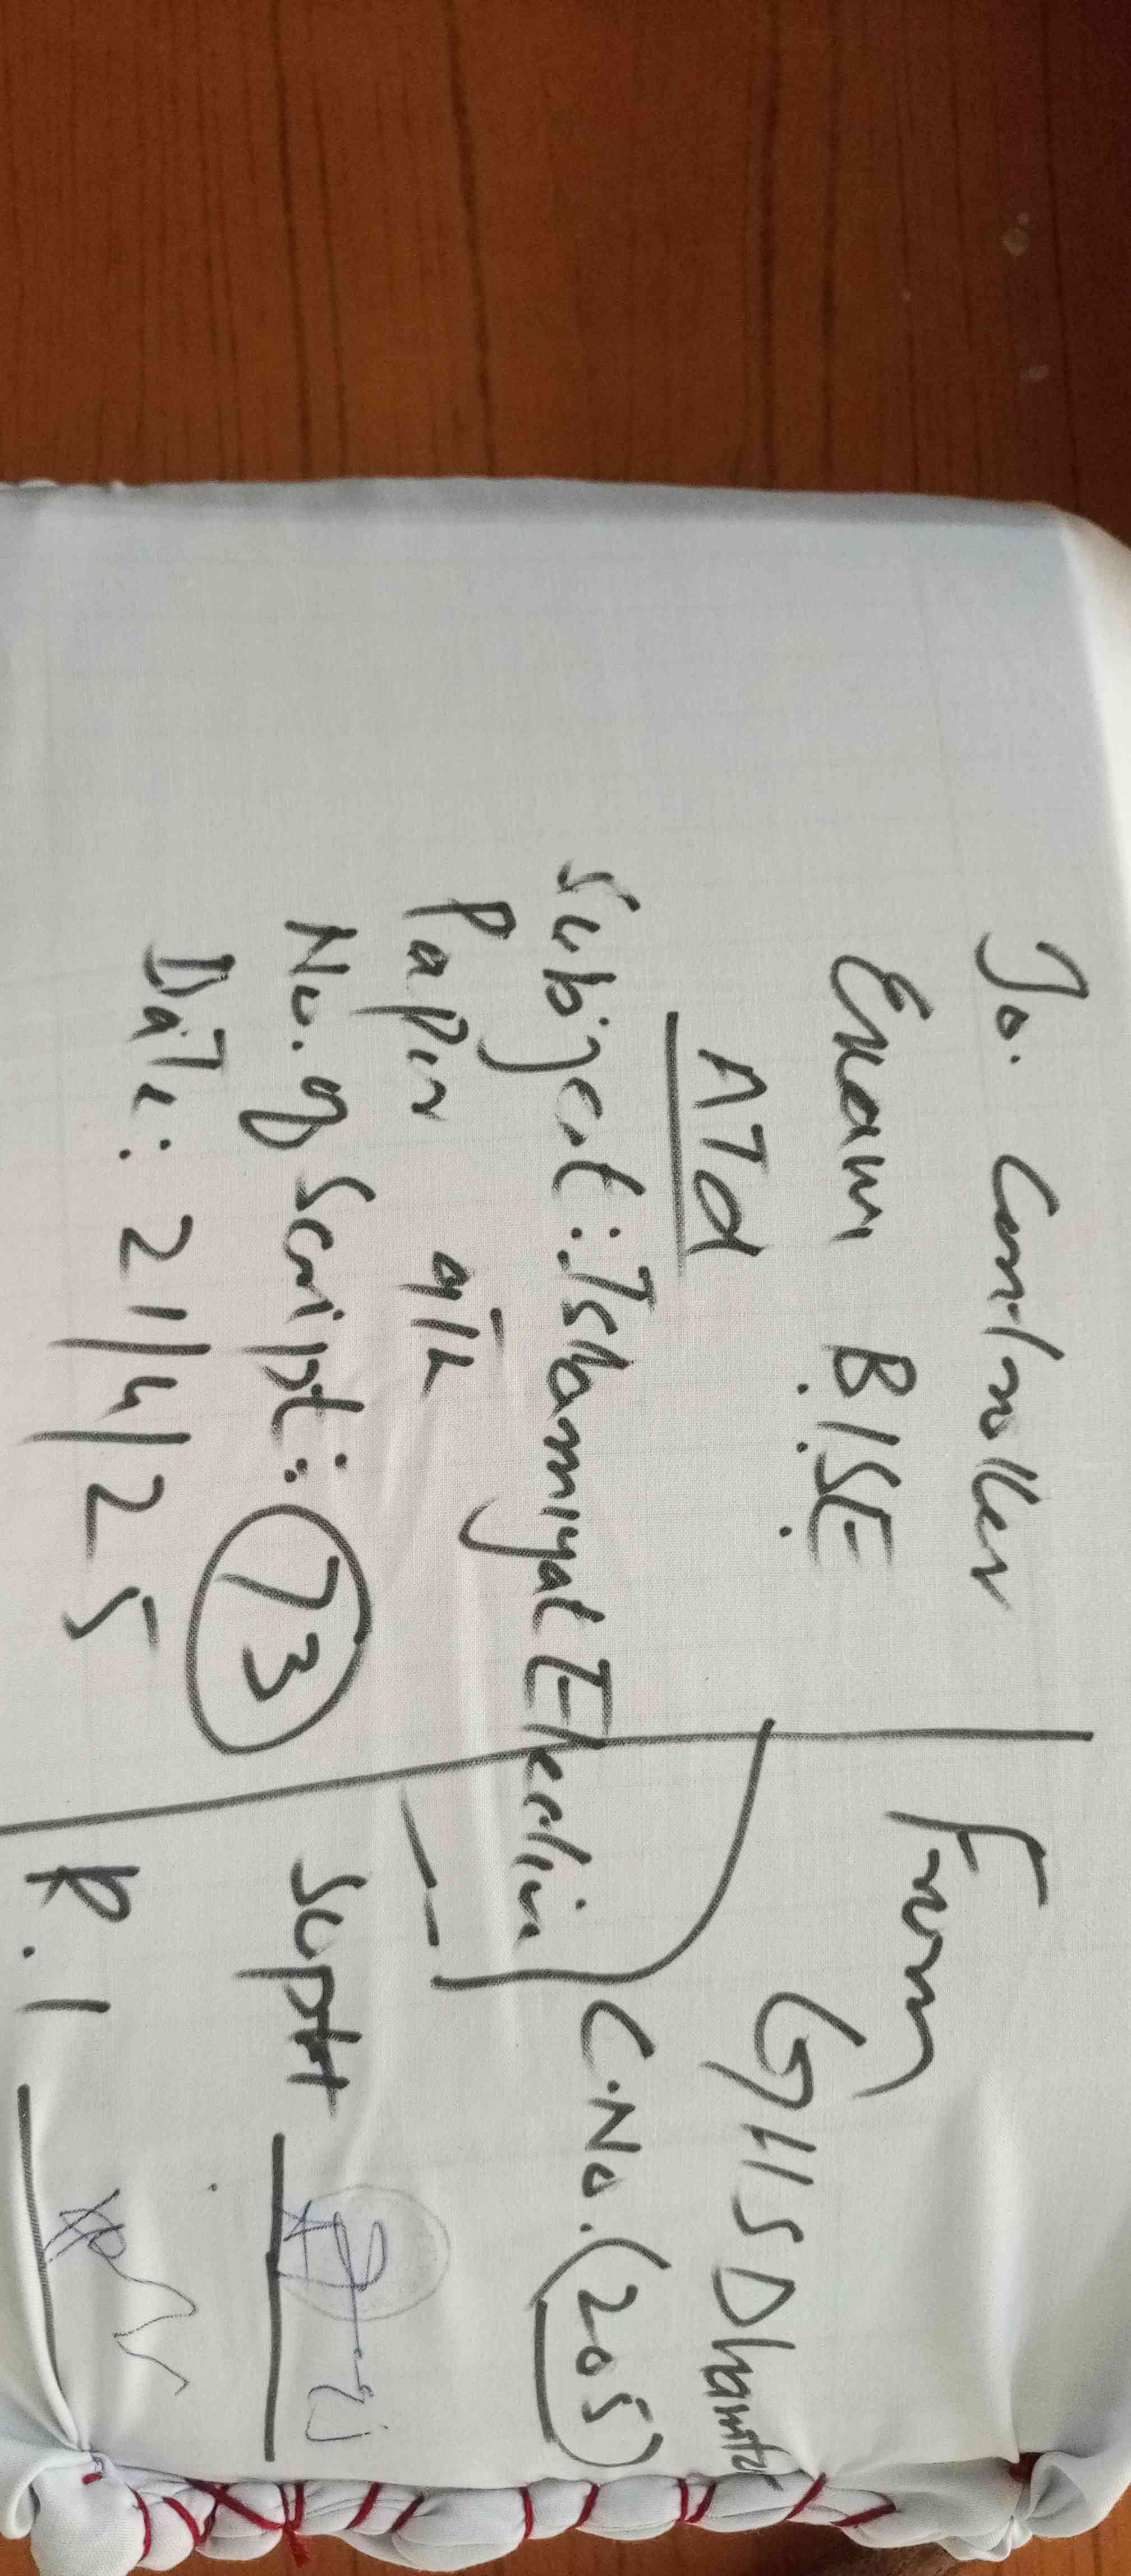 To. Controller
Exam B.I.S.E
ATd
Subject: Islamiyat Elective
Paper 9th
No. of Script: 73
Date: 21/4/25
From
GHS Dhamtor
C.No. (205)
Supdt
R.I